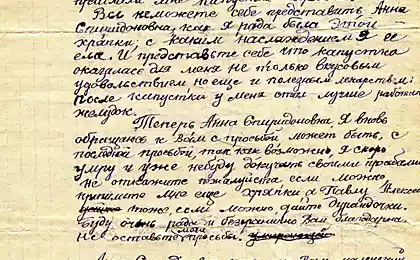 Вы неможете себе представить Анна
Спиридоновна, как я рада была этой
хряпки, с каким наслаждением я ее
ела. И представьте себе что капустка
оказалась для меня не только вкусовым
удовольствием но еще и полезным лекарством:
после капустки у меня стал лучше работать
желудок.
Теперь Анна Спиридоновна я вновь
обращаюсь к Вам с просьбой может быть, с
последней просьбой так как возможно, я скоро
умру и уже небуду докучать своими просьбами.
Не откажите пожалуйста если можно
пришлите мне еще хряпки а Павлу Алексее
тоже, если можно дайте дурандочки.
Буду очень рада и безгранично Вам благодарна.
Не оставьте моей просьбы,